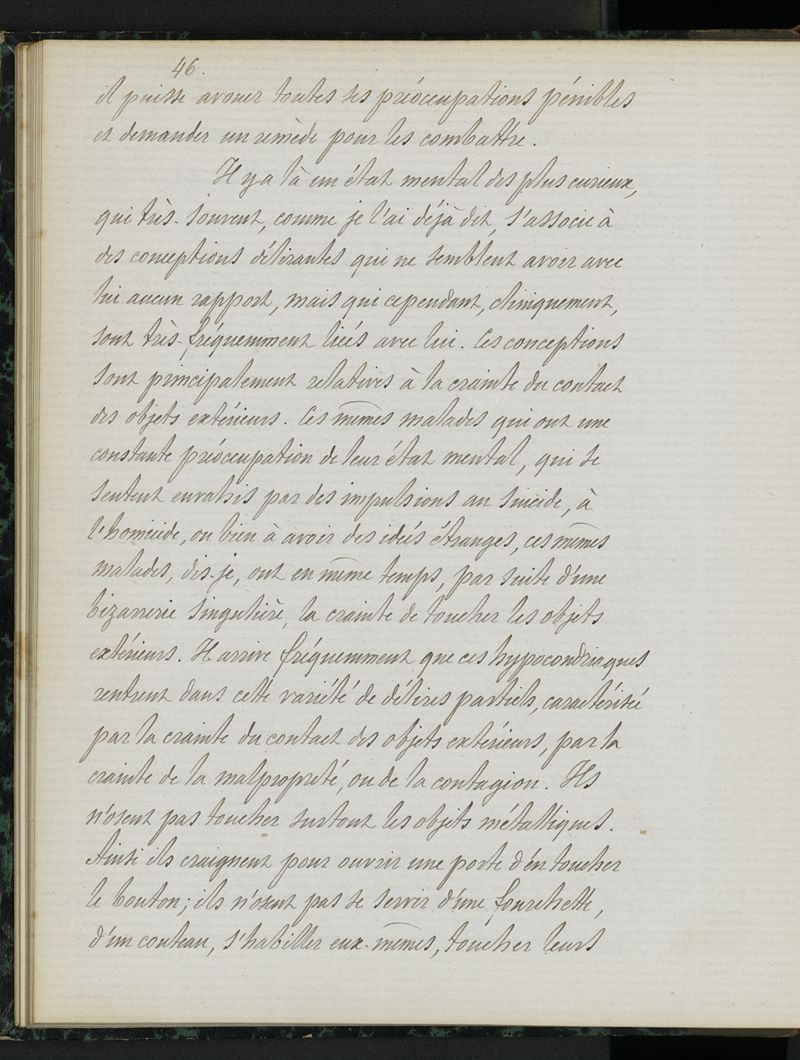 46.
il puisse avouer toutes ses préoccupations pénibles
et demander un remède pour les combattre.
Il y a là un état mental des plus curieux,
qui très-souvent, comme je l'ai déjà dit, s'associe à
des conceptions délirantes qui ne semblent avoir avec
lui aucun rapport, mais qui cependant, cliniquement,
sont très-fréquemment liés avec lui. Ces conceptions
sont principalement relatives à la crainte du contact
des objets extérieurs. Ces mêmes malades qui ont une
constante préoccupation de leur état mental, qui se
sentent envahis par des impulsions au suicide, à
l'homicide, ou bien à avoir des idées étranges, ces mêmes
malades, dis-je, ont en même temps, par suite d'une
bizarrerie singulière, la crainte de toucher les objets
extérieurs. Il arrive fréquemment que ces hypocondriaques
rentrent dans cette variété de délires partiels, caractérisée
par la crainte du contact des objets extérieurs, par la
crainte de la malpropreté, ou de la contagion. Ils
n'osent pas toucher surtout les objets métalliques.
Ainsi ils craignent pour ouvrir une porte d'en toucher
le bouton; ils n'osent pas se servir d'une fourchette,
d'un couteau, s'habiller eux-mêmes, toucher leurs